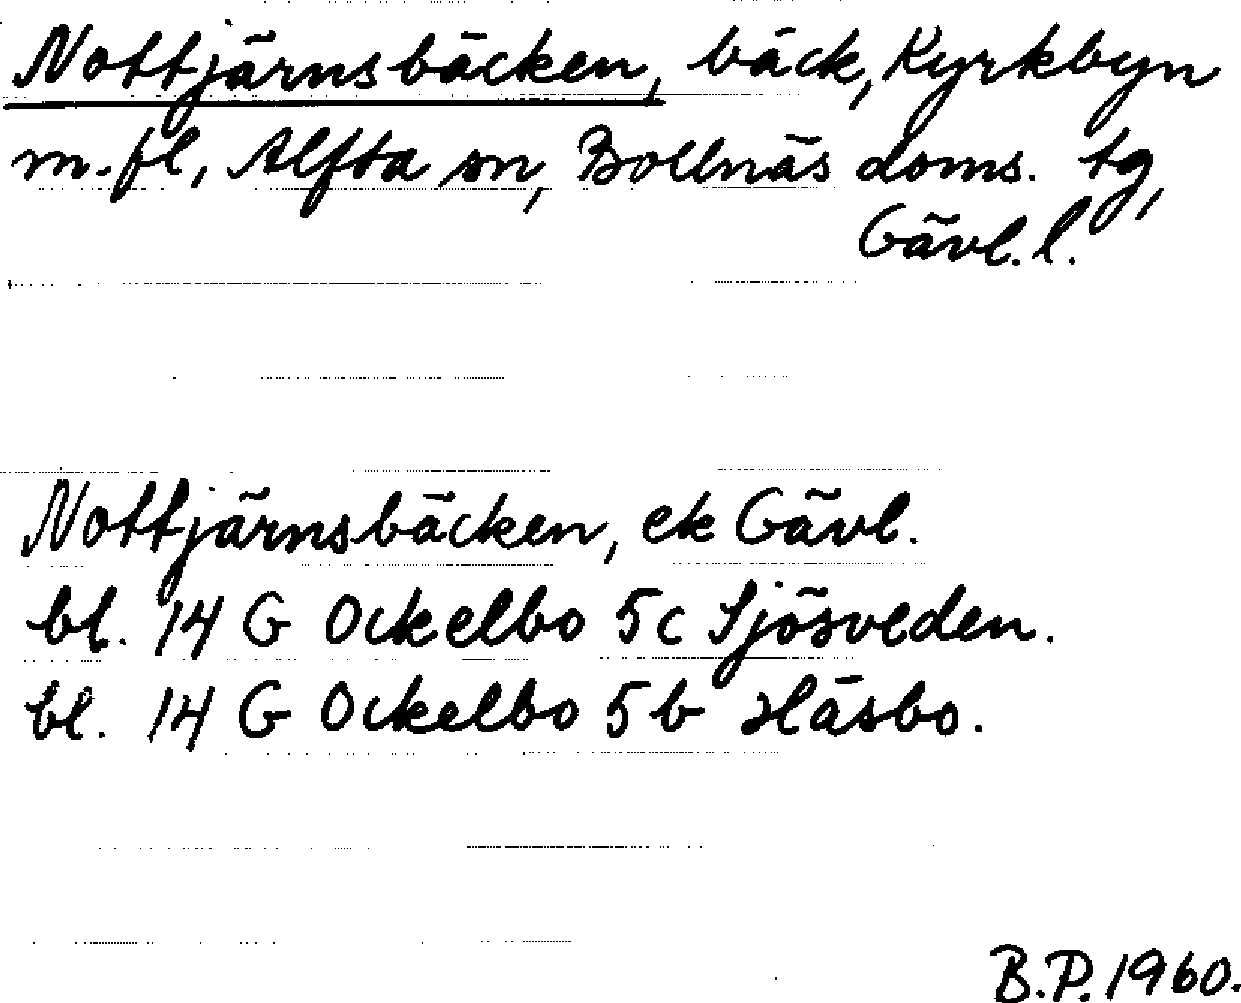 Nottjärnsbäcken, bäck, Kyrkbyn
m.fl., Alfta sn, Bollnäs doms. tg,
Gävl. l.
Nottjärnsbäcken, ek Gävl.
bl. 14 G Ockelbo 5c Sjösveden.
bl. 14 G Ockelbo 5b Häsbo.
B.P. 1960.